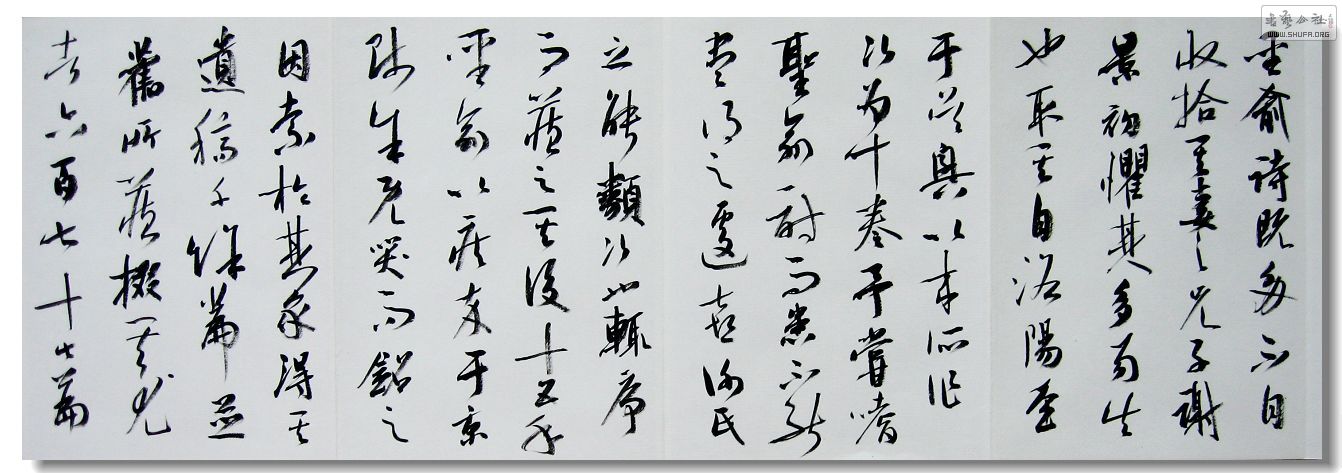 聖俞詩既多不自
收拾其妻之兄子謝
景初懼其多而失
也取其自洛陽至
于吳興以來所作
次為十卷予嘗嗜
聖俞詩而患不能
盡得之遽喜謝氏
之能類次也輒序
而藏之其後十五年
聖俞以疾卒于京
師余既哭而銘之
因索於其家得其
遺稿千餘篇並
舊所藏掇其尤
者六百七十七篇
WWW.SHUFA.ORG